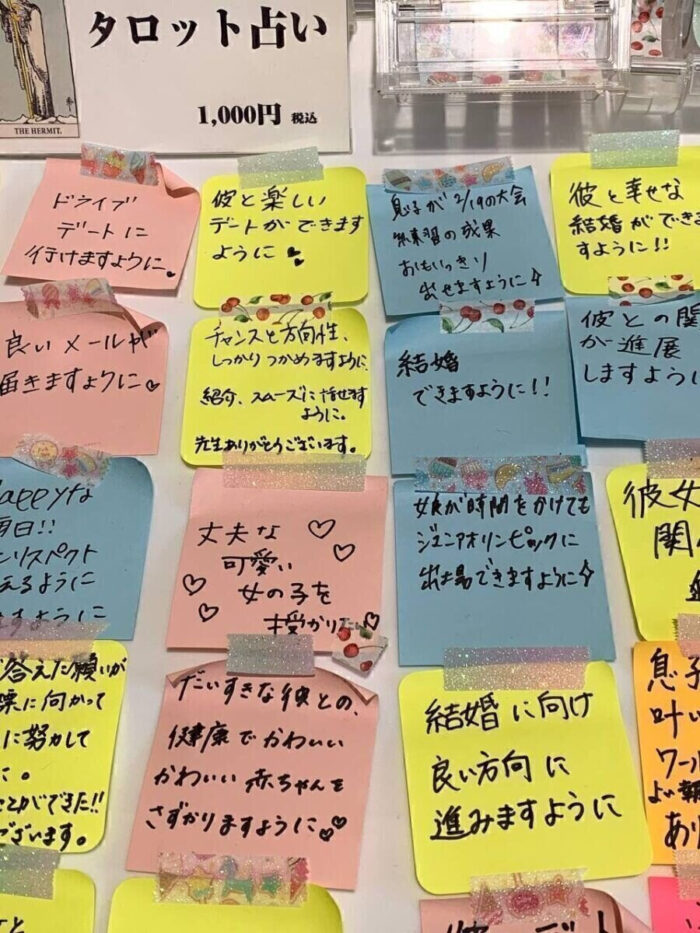 タロット占い
1,000円 税込
THE HERMIT.
ドライブ
デートに
行けますように
彼と楽しい
デートができます
ように
息子が2/19の大会
練習の成果
おもいっきり
出せますように
彼と幸せな
結婚ができま
すように!!
良いメールが
届きますように
チャンスと方向性、
しっかりつかめますように
紹介、スムーズに
ように。
先生ありがとうございます。
結婚
できますように!!
彼との関
が進展
しますように
な
毎日!!
リスペクト
るように
ますように
丈夫な
可愛い
女の子を
授かりたい
娘が時間をかけても
ジュニアオリンピックに
出場できますように
彼女
関
答えた願いが
果に向かって
に努力して
。
ことができた!!
ございます。
だいすきな彼との、
健康でかわいい
かわいい赤ちゃんを
さずかりますように
結婚に向け
良い方向に
進みますように
息子
叶い
ワール
よい報
あり